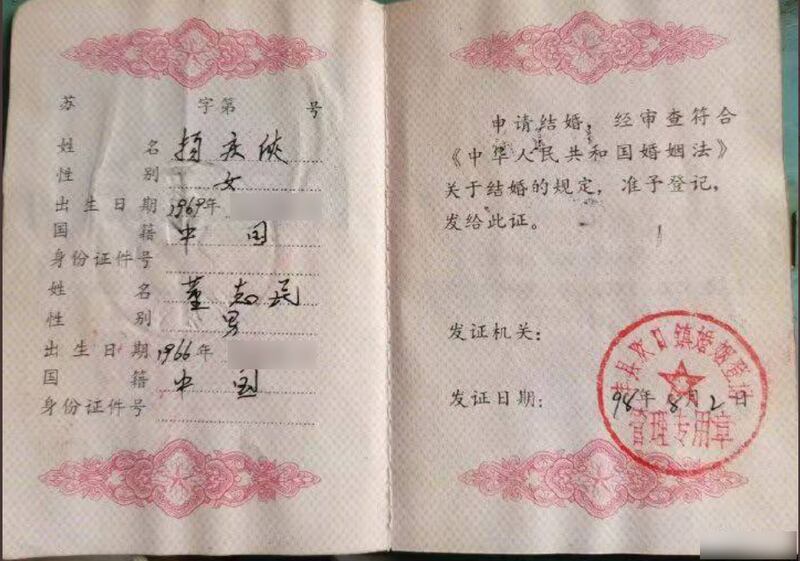 苏 字第 号
姓名 杨庆侠
性别 女
出生日期 1969年
国籍 中国
身份证件号
姓名 董志民
性别 男
出生日期 1966年
国籍 中国
身份证件号
申请结婚,经审查符合
《中华人民共和国婚姻法》
关于结婚的规定,准予登记,
发给此证。
发证机关:
发证日期: 98年8月2日
丰县欢口镇婚姻登记
管理专用章